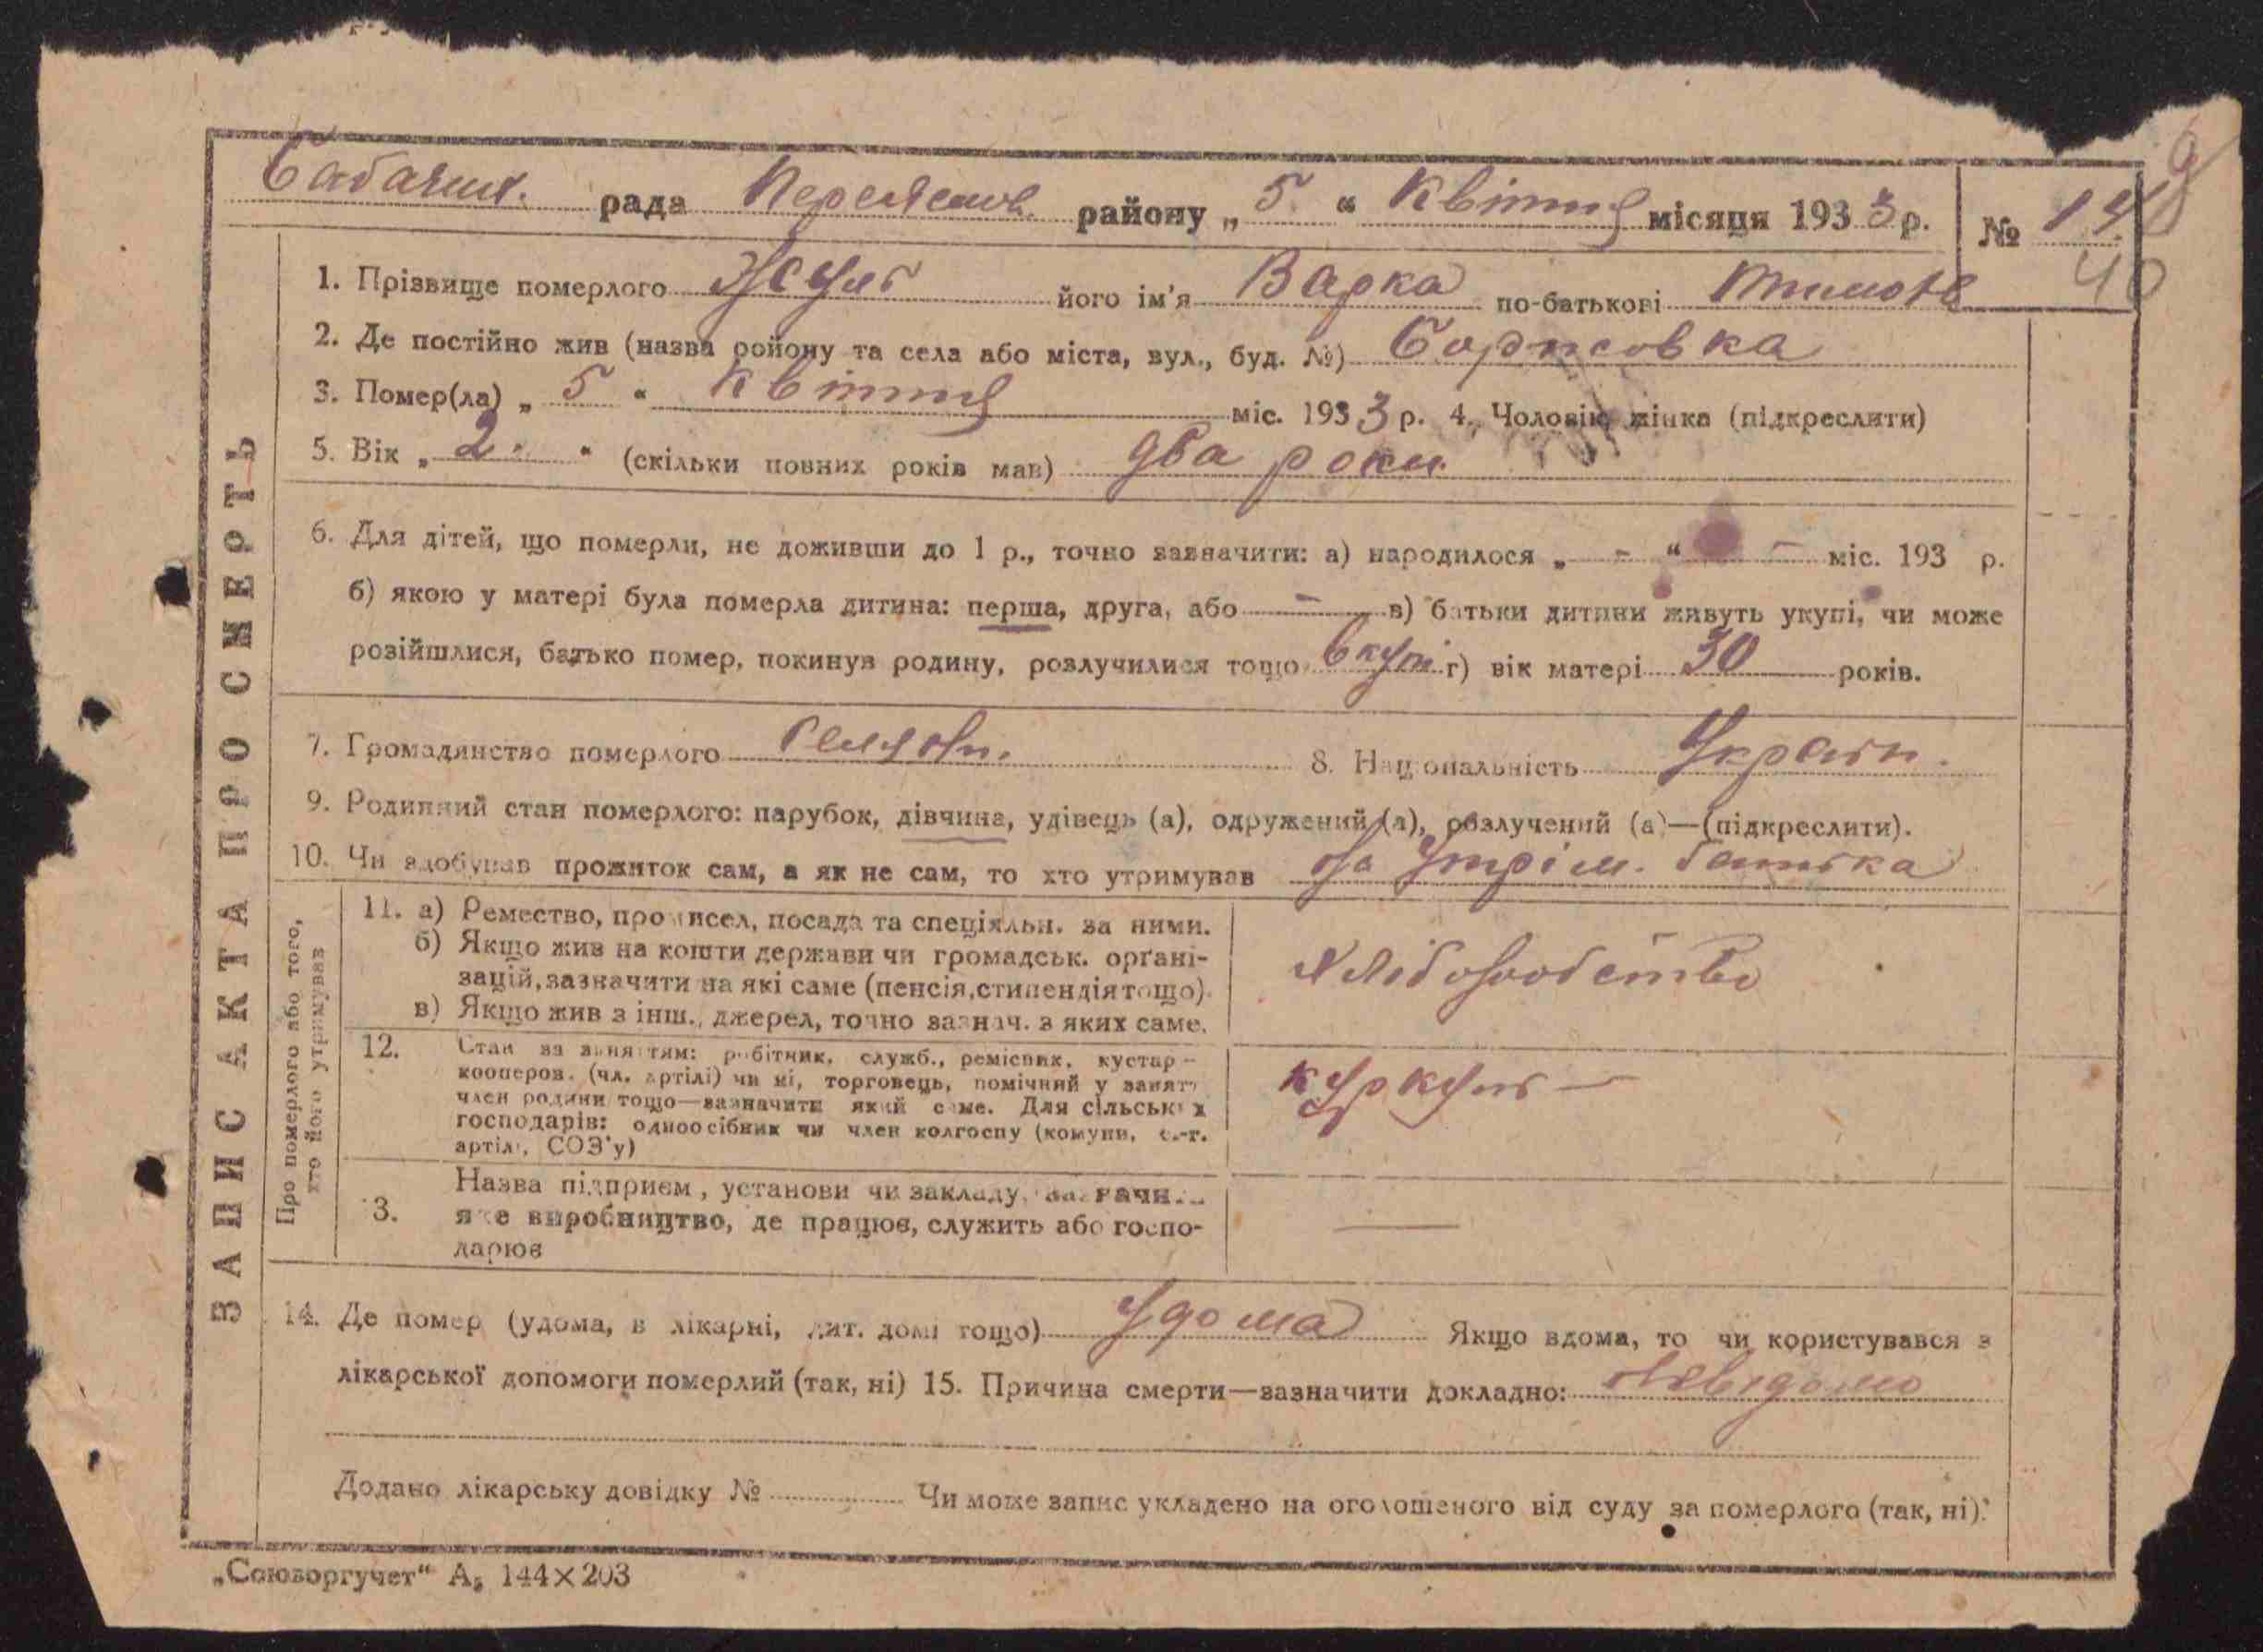 Бабачих. рада Переяслов. району „ 5 “ Квітня місяця 1933 р. № 14
40
1. Прізвище померлого Жуль його ім'я Варка по-батькові Тимофе
2. Де постійно жив (назва району та села або міста, вул., буд. №) Борисовка
3. Помер(ла) „ 5 “ Квітня міс. 1933 р. 4. Чоловік, жінка (підкреслити)
5. Вік „ 2 “ (скільки повних років мав) два роки
6. Для дітей, що померли, не доживши до 1 р., точно зазначити: а) народилося „ - “ - міс. 193 р.
б) якою у матері була померла дитина: перша, друга, або - в) батьки дитини живуть укупі, чи може
розійшлися, батько помер, покинув родину, розлучилися тощо Вкупі г) вік матері 30 років.
7. Громадянство померлого Селян. 8. Національність Україн.
9. Родинний стан померлого: парубок, дівчина, удівець (а), одружений (а), розлучений (а)—(підкреслити).
10. Чи здобував прожиток сам, а як не сам, то хто утримував На Утрім. батька
ЗАПИС АКТА ПРО СМЕРТЬ
Про померлого або того,
хто його утримував
11. а) Ремество, промисел, посада та спеціяльн. за ними.
б) Якщо жив на кошти держави чи громадськ. орґані-
зацій, зазначити на які саме (пенсія, стипендія тощо).
в) Якщо жив з інш., джерел, точно зазнач. з яких саме.
Хліборобство
12. Стан за заняттям: робітник, служб., ремісник, кустар-
кооперов. (чл. артілі) чи ні, торговець, помічний у занятт.
член родини тощо—зазначити який саме. Для сільських
господарів: одноосібник чи член колгоспу (комуни, с.-г.
артілі, СОЗ'у)
куркуль —
13. Назва підприєм, установи чи закладу, зазначи
яке виробництво, де працює, служить або госпо-
дарює
—
14. Де помер (удома, в лікарні, дит. домі тощо) Удома Якщо вдома, то чи користувався з
лікарської допомоги померлий (так, ні) 15. Причина смерти—зазначити докладно: Невідомо
Додано лікарську довідку № Чи може запис укладено на оголошеного від суду за померлого (так, ні).
„Союзоргучет“ А5 144×203